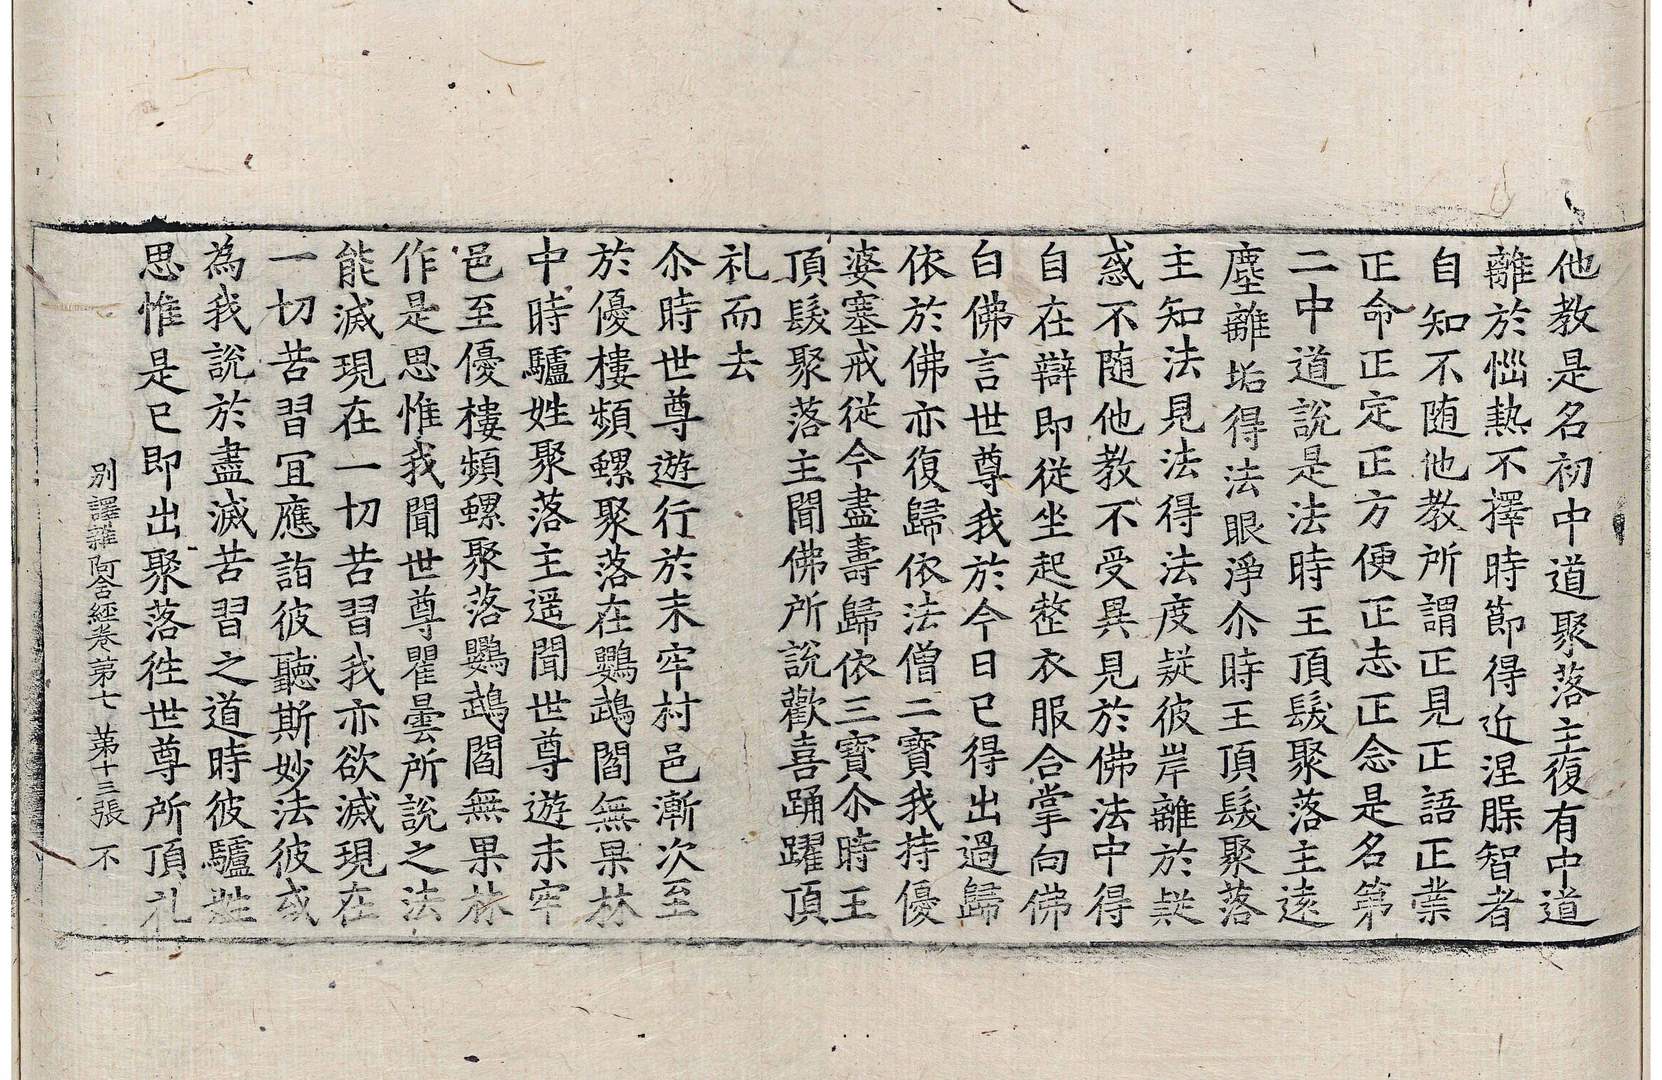 他教是名初中道聚落主復有中道
離於惱熱不擇時節得近涅槃智者
自知不随他教所謂正見正語正業
正命正定正方便正志正念是名第
二中道說是法時王頂髮聚落主遠
塵離垢得法眼淨尒時王頂髮聚落
主知法見法得法度疑彼岸離於疑
惑不随他教不受異見於佛法中得
自在辯即從坐起整衣服合掌向佛
白佛言世尊我於今日已得出過歸
依於佛亦復歸依法僧二寶我持優
婆塞戒從今盡壽歸依三寶尒時王
頂髮聚落主聞佛所說歡喜踊躍頂
礼而去
尒時世尊遊行於末牢村邑漸次至
於優樓頻螺聚落在鸚鵡閻無果林
中時驢姓聚落主遥聞世尊遊末牢
邑至優樓頻螺聚落鸚鵡閻無果林
作是思惟我聞世尊瞿曇所說之法
能滅現在一切苦習我亦欲滅現在
一切苦習冝應詣彼聽斯妙法彼或
為我說於盡滅苦習之道時彼驢姓
思惟是已即出聚落徃世尊所頂礼
別譯雜阿含經卷第七 第十三張 不